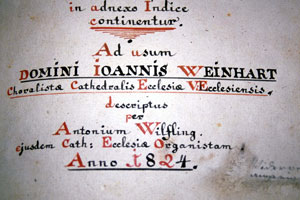 in adnexo Indice
continentur.
Ad usum
DOMINI IOANNIS WEINHART
Choralistæ Cathedralis Ecclesiæ V:Ecclesiensis,
descriptus
per
Antonium Wilfling.
ejusdem Cath: Ecclesiæ Organistam
Anno 1824.